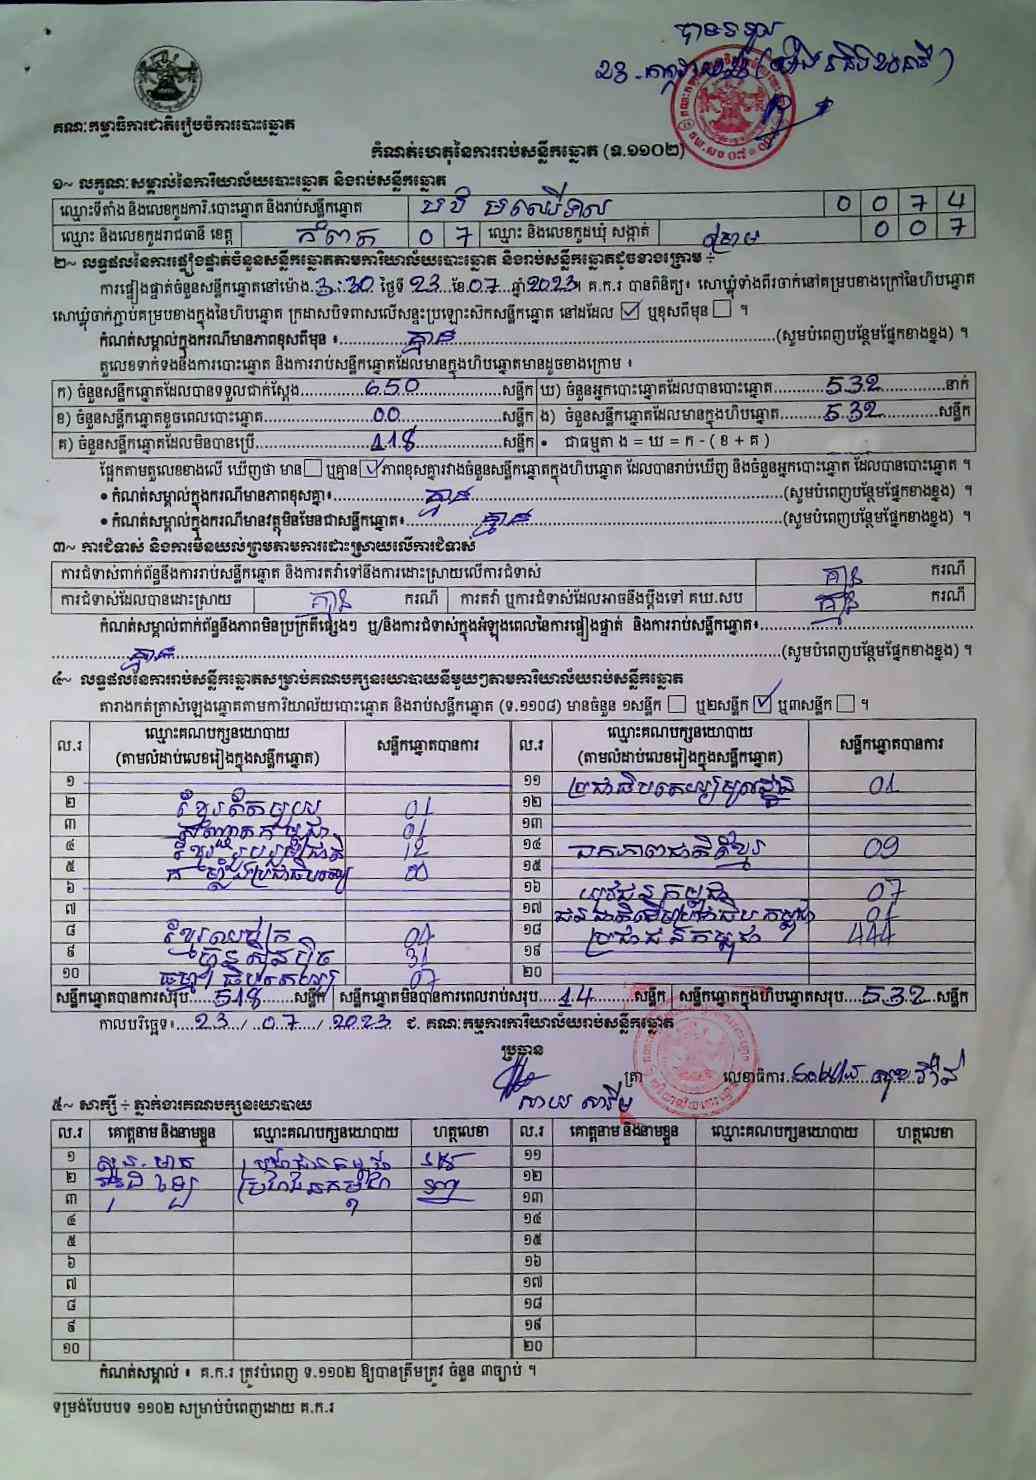 បានទទួល
គណៈកម្មាធិការជាតិរៀបចំការបោះឆ្នោត
កំណត់ហេតុនៃការរាប់សន្លឹកឆ្នោត (ទ.១១០២)
១~ លក្ខណៈសម្គាល់នៃការិយាល័យបោះឆ្នោត និងរាប់សន្លឹកឆ្នោត
ឈ្មោះទីតាំង និងលេខកូដការិ.បោះឆ្នោត និងរាប់សន្លឹកឆ្នោត 0 0 7 4
ឈ្មោះ និងលេខកូដរាជធានី ខេត្ត កំពត 0 7 ឈ្មោះ និងលេខកូដឃុំ សង្កាត់ 0 0 7
២~ លទ្ធផលនៃការផ្ទៀងផ្ទាត់ចំនួនសន្លឹកឆ្នោតតាមការិយាល័យបោះឆ្នោត និងរាប់សន្លឹកឆ្នោតដូចខាងក្រោម ÷
ការផ្ទៀងផ្ទាត់ចំនួនសន្លឹកឆ្នោតនៅម៉ោង 3:30 ថ្ងៃទី 23 ខែ 07 ឆ្នាំ 2023។ គ.ក.រ បានពិនិត្យ៖ សោឃ្លុំទាំងពីរចាក់នៅគម្របខាងក្រៅនៃហិបឆ្នោត
សោឃ្លុំចាក់ភ្ជាប់គម្របខាងក្នុងនៃហិបឆ្នោត ក្រដាសបិទពាសលើសន្ទះប្រឡោះសិកសន្លឹកឆ្នោត នៅដដែល ☑ ឬខុសពីមុន ☐ ។
កំណត់សម្គាល់ក្នុងករណីមានភាពខុសពីមុន ៖ គ្មាន (សូមបំពេញបន្ថែមផ្នែកខាងខ្នង) ។
តួលេខទាក់ទងនឹងការបោះឆ្នោត និងការរាប់សន្លឹកឆ្នោតដែលមានក្នុងហិបឆ្នោតមានដូចខាងក្រោម ៖
ក) ចំនួនសន្លឹកឆ្នោតដែលបានទទួលជាក់ស្តែង 650 សន្លឹក ឃ) ចំនួនអ្នកបោះឆ្នោតដែលបានបោះឆ្នោត 532 នាក់
ខ) ចំនួនសន្លឹកឆ្នោតខូចពេលបោះឆ្នោត 00 សន្លឹក ង) ចំនួនសន្លឹកឆ្នោតដែលមានក្នុងហិបឆ្នោត 532 សន្លឹក
គ) ចំនួនសន្លឹកឆ្នោតដែលមិនបានប្រើ 118 សន្លឹក • ជាធម្មតា ង = ឃ = ក - ( ខ + គ )
ផ្អែកតាមតួលេខខាងលើ ឃើញថា មាន ☐ ឬគ្មាន ☑ ភាពខុសគ្នារវាងចំនួនសន្លឹកឆ្នោតក្នុងហិបឆ្នោត ដែលបានរាប់ឃើញ និងចំនួនអ្នកបោះឆ្នោត ដែលបានបោះឆ្នោត ។
• កំណត់សម្គាល់ក្នុងករណីមានភាពខុសគ្នា៖ គ្មាន (សូមបំពេញបន្ថែមផ្នែកខាងខ្នង) ។
• កំណត់សម្គាល់ក្នុងករណីមានវត្ថុមិនមែនជាសន្លឹកឆ្នោត៖ គ្មាន (សូមបំពេញបន្ថែមផ្នែកខាងខ្នង) ។
៣~ ការជំទាស់ និងការមិនយល់ព្រមតាមការដោះស្រាយលើការជំទាស់
ការជំទាស់ពាក់ព័ន្ធនឹងការរាប់សន្លឹកឆ្នោត និងការតវ៉ាទៅនឹងការដោះស្រាយលើការជំទាស់ គ្មាន ករណី
ការជំទាស់ដែលបានដោះស្រាយ គ្មាន ករណី ការតវ៉ា ឬការជំទាស់ដែលអាចនឹងប្តឹងទៅ គឃ.សប គ្មាន ករណី
កំណត់សម្គាល់ពាក់ព័ន្ធនឹងភាពមិនប្រក្រតីផ្សេងៗ ឬ/និងការជំទាស់ក្នុងអំឡុងពេលនៃការផ្ទៀងផ្ទាត់ និងការរាប់សន្លឹកឆ្នោត៖
គ្មាន (សូមបំពេញបន្ថែមផ្នែកខាងខ្នង) ។
៤~ លទ្ធផលនៃការរាប់សន្លឹកឆ្នោតសម្រាប់គណបក្សនយោបាយនីមួយៗតាមការិយាល័យរាប់សន្លឹកឆ្នោត
តារាងកត់ត្រាសំឡេងឆ្នោតតាមការិយាល័យបោះឆ្នោត និងរាប់សន្លឹកឆ្នោត (ទ.១១០៨) មានចំនួន ១សន្លឹក ☐ ឬ២សន្លឹក ☑ ឬ៣សន្លឹក ☐ ។
ល.រ ឈ្មោះគណបក្សនយោបាយ (តាមលំដាប់លេខរៀងក្នុងសន្លឹកឆ្នោត) សន្លឹកឆ្នោតបានការ ល.រ ឈ្មោះគណបក្សនយោបាយ (តាមលំដាប់លេខរៀងក្នុងសន្លឹកឆ្នោត) សន្លឹកឆ្នោតបានការ
១ ១១ ប្រជាធិបតេយ្យមូលដ្ឋាន 01
២ ខ្មែរតែមួយ 01 ១២
៣ 01 ១៣
៤ 12 ១៤ ឯកភាពជាតិខ្មែរ 09
៥ កម្លាំងប្រជាធិបតេយ្យ 00 ១៥
៦ ១៦ យុវជនកម្ពុជា 07
៧ ១៧ ជនជាតិដើមប្រជាធិបកម្ពុជា 01
៨ 04 ១៨ ប្រជាជនកម្ពុជា 444
៩ ហ៊្វុនស៊ិនប៉ិច 31 ១៩
១០ ធម្មាធិបតេយ្យ 07 ២០
សន្លឹកឆ្នោតបានការសរុប 518 សន្លឹក សន្លឹកឆ្នោតមិនបានការពេលរាប់សរុប 14 សន្លឹក សន្លឹកឆ្នោតក្នុងហិបឆ្នោតសរុប 532 សន្លឹក
កាលបរិច្ឆេទ៖ 23 / 07 / 2023 ជ. គណៈកម្មការការិយាល័យរាប់សន្លឹកឆ្នោត
ប្រធាន
ត្រា លេខាធិការ
៥~ សាក្សី ÷ ភ្នាក់ងារគណបក្សនយោបាយ
ល.រ គោត្តនាម និងនាមខ្លួន ឈ្មោះគណបក្សនយោបាយ ហត្ថលេខា ល.រ គោត្តនាម និងនាមខ្លួន ឈ្មោះគណបក្សនយោបាយ ហត្ថលេខា
១ ប្រជាជនកម្ពុជា ១១
២ ប្រជាជនកម្ពុជា ១២
៣ ១៣
៤ ១៤
៥ ១៥
៦ ១៦
៧ ១៧
៨ ១៨
៩ ១៩
១០ ២០
កំណត់សម្គាល់ ៖ គ.ក.រ ត្រូវបំពេញ ទ.១១០២ ឱ្យបានត្រឹមត្រូវ ចំនួន ៣ច្បាប់ ។
ទម្រង់បែបបទ ១១០២ សម្រាប់បំពេញដោយ គ.ក.រ